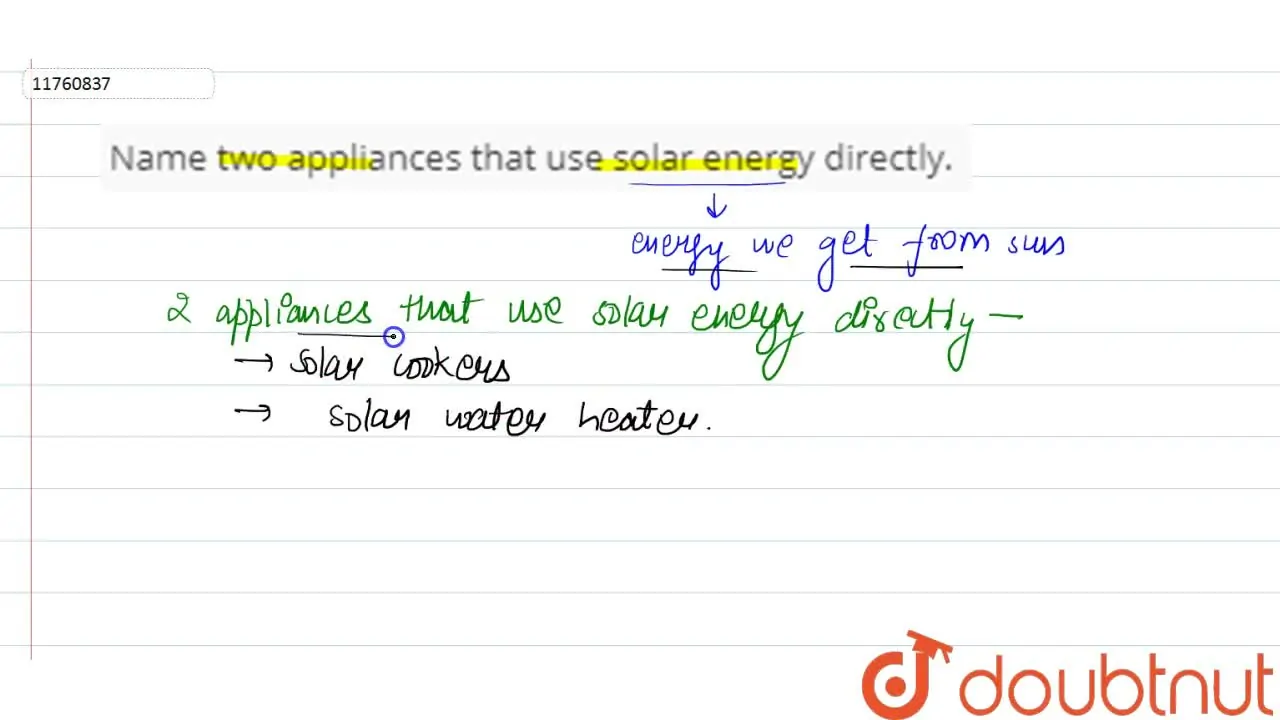 11760837
Name two appliances that use solar energy directly.
energy we get from sun
2 appliances that use solar energy directly —
→ solar cookers
→ solar water heater.
doubtnut